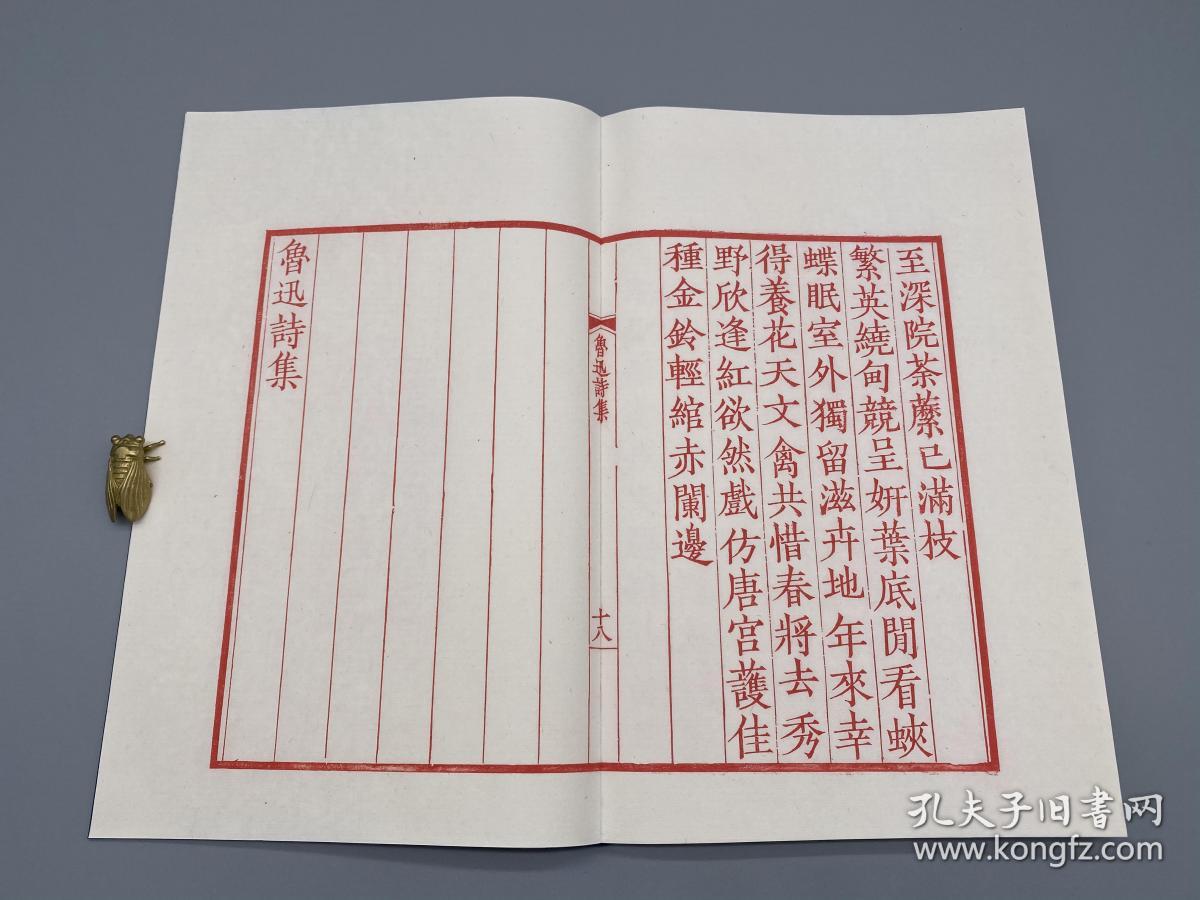 至深院荼蘼已滿枝
繁英繞甸競呈妍葉底閒看蛺
蝶眠室外獨留滋卉地年來幸
得養花天文禽共惜春將去秀
野欣逢紅欲然戲仿唐宮護佳
種金鈴輕綰赤闌邊
魯迅詩集
十八
魯迅詩集
孔夫子旧書网
www.kongfz.com